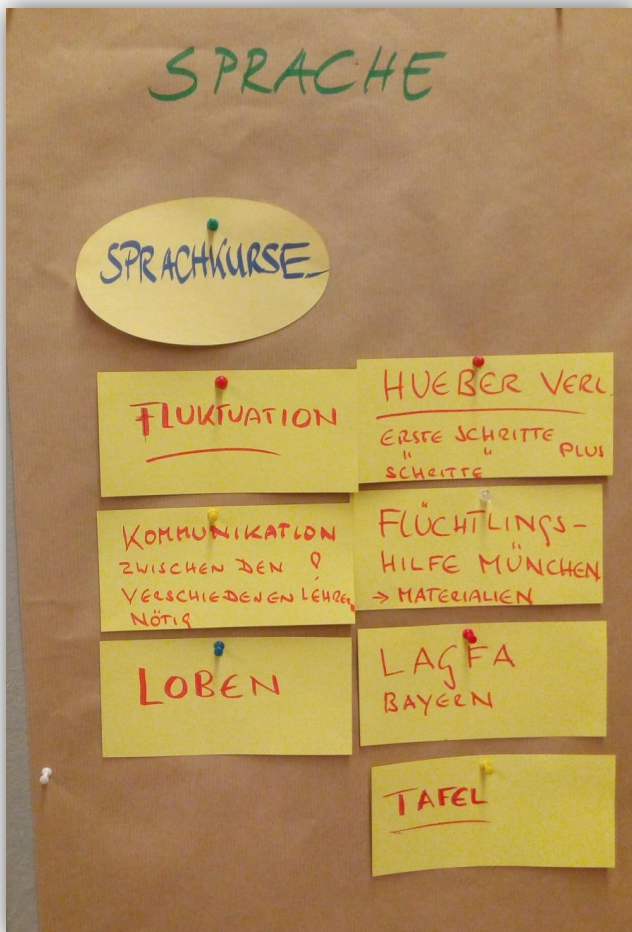 SPRACHE
SPRACHKURSE
FLUKTUATION
KOMMUNIKATION
ZWISCHEN DEN
VERSCHIEDENEN LEHRERN
NÖTIG
LOBEN
HUEBER VERL.
ERSTE SCHRITTE PLUS
" "
SCHRITTE
FLÜCHTLINGS-
HILFE MÜNCHEN
→ MATERIALIEN
LAGFA
BAYERN
TAFEL